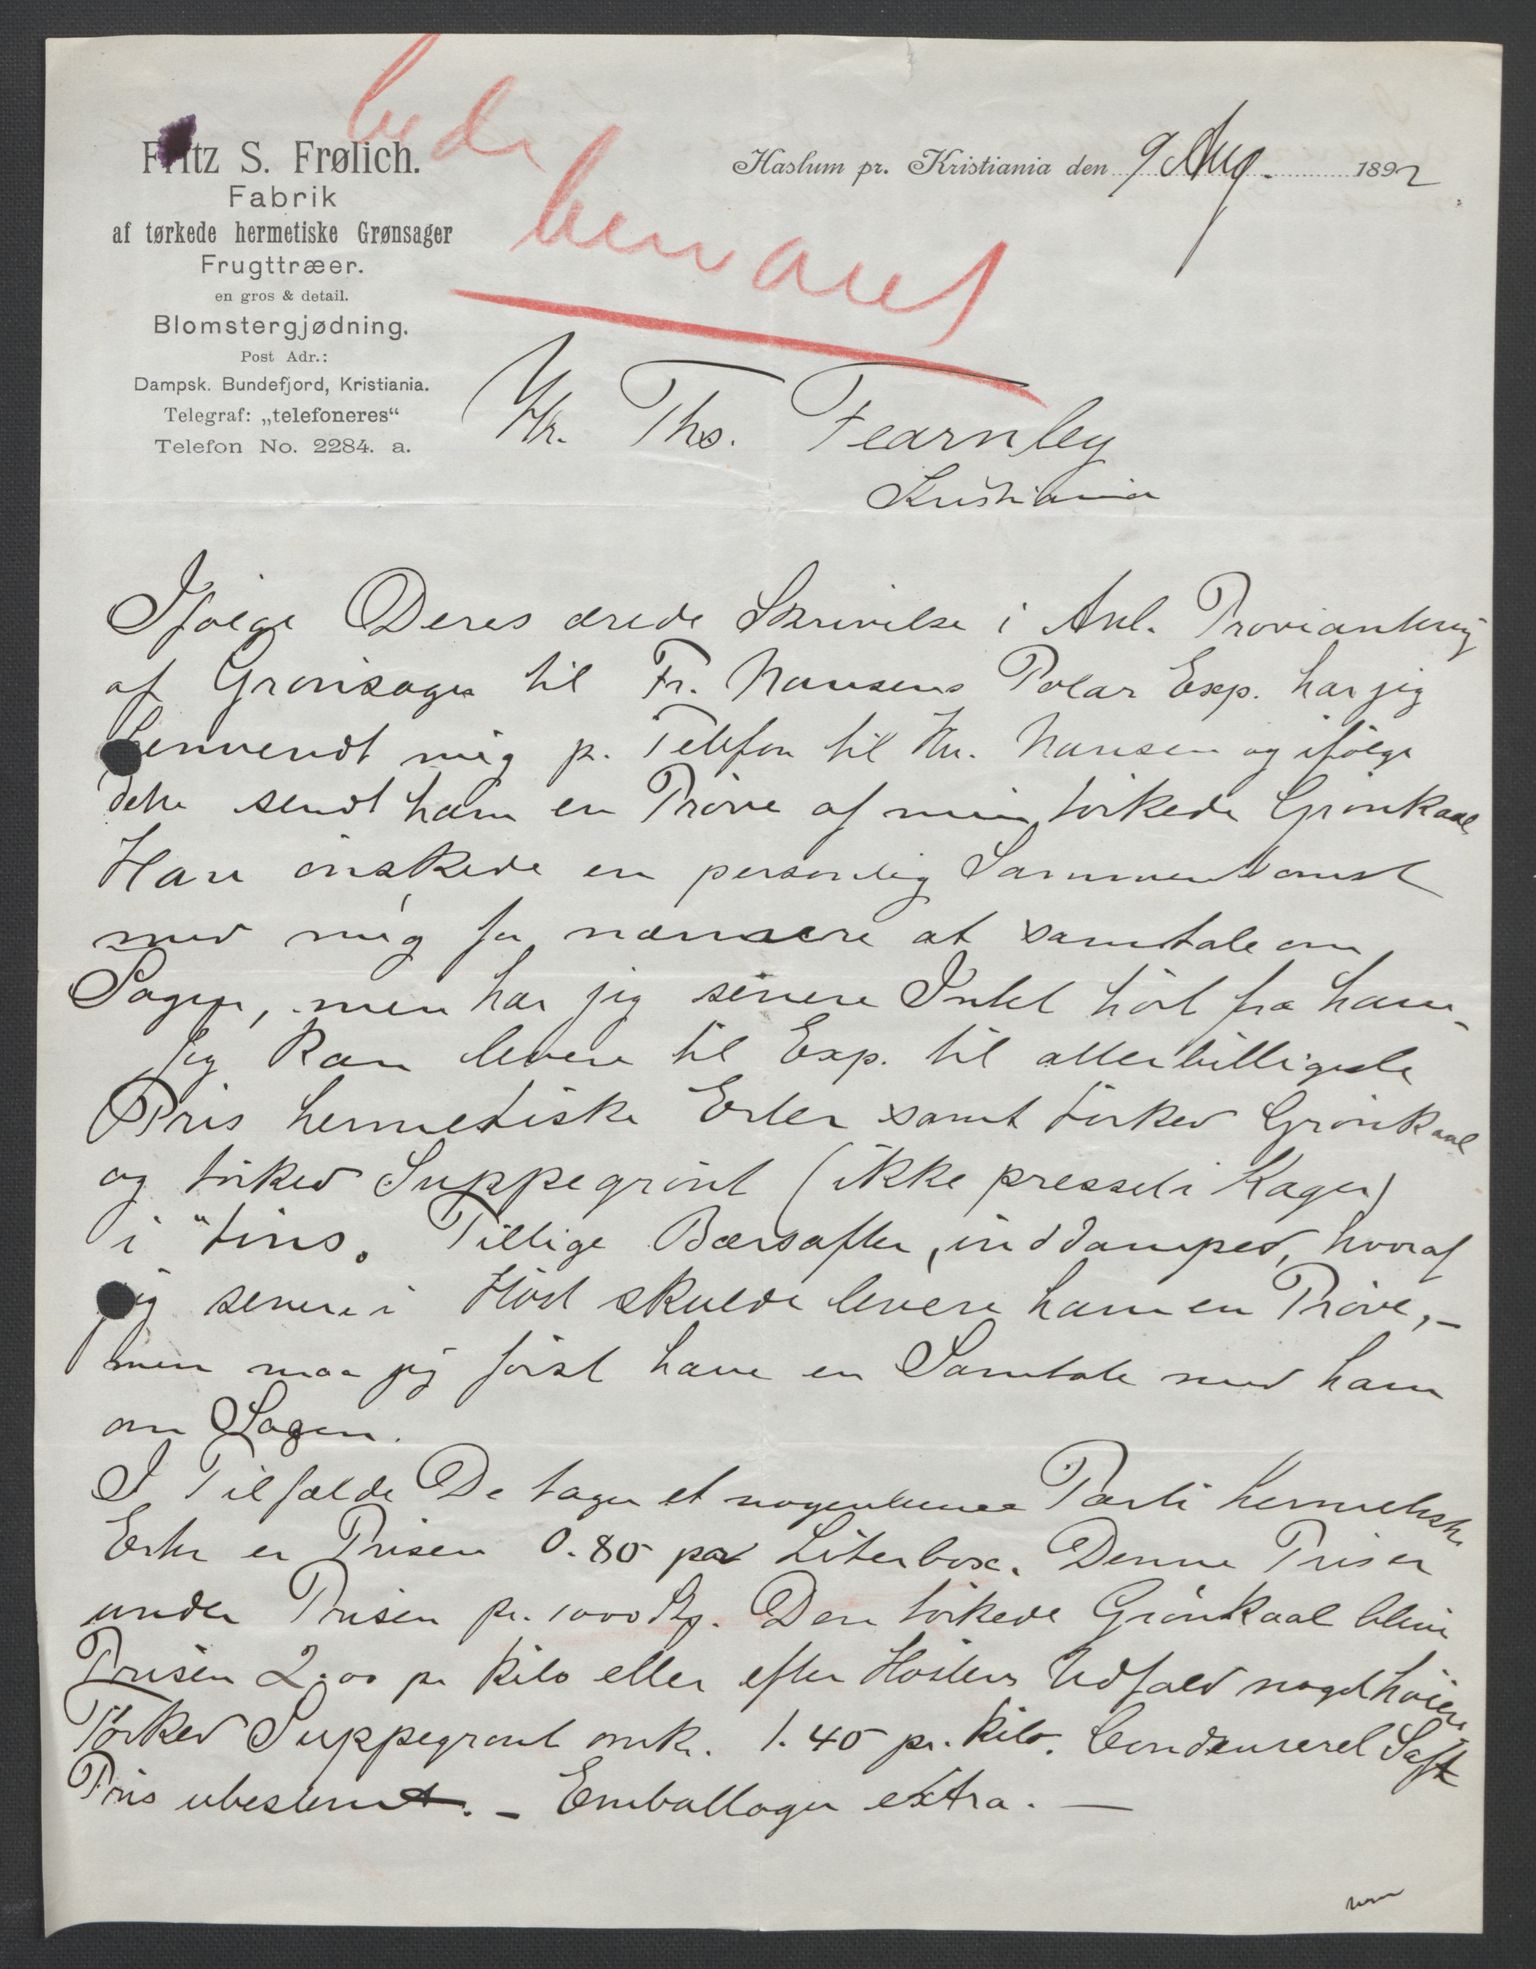 Fritz S. Frølich.
Fabrik
af tørkede hermetiske Grønsager
Frugttræer.
en gros & detail.
Blomstergjødning.
Post Adr.:
Dampsk. Bundefjord, Kristiania.
Telegraf: „telefoneres“
Telefon No. 2284. a.
Haslum pr. Kristiania den 9 Aug. 1892
Hr. Ths. Fearnley
Kristiania
Ifølge Deres ærede Skrivelse i Anl. Proviantering
af Grønsager til Fr. Nansens Polar Exp. har jeg
henvendt mig p. Telefon til Hr. Nansen og ifølge
dette sendt ham en Prøve af min tørkede Grønkaal
Han ønskede en personlig Sammenkomst
med mig for nærmere at samtale om
Sagen, men har jeg senere Intet hørt fra ham.
Jeg kan levere til Exp. til allerbilligste
Pris hermetiske Erter samt tørket Grønkaal
og tørket Suppegrønt (ikke presset i Kager)
i "tins. Tillige Bærsafter, inddampet, hvoraf
jeg senere i Høst skulde levere ham en Prøve,–
men maa jeg først have en Samtale med ham
om Sagen.
I Tilfælde De tager et nogenlunde Parti hermetiske
Erter er Prisen 0.80 pr Literbox. Denne Pris er
under Prisen pr. 1000 Stk. Den tørkede Grønkaal bliver
Prisen 2.00 pr kilo eller efter Høstens Udfald noget høiere
Tørket Suppegrønt omkr. 1.40 pr. kilo. Condenseret Saft
Pris ubestemt. – Emballagen extra. —